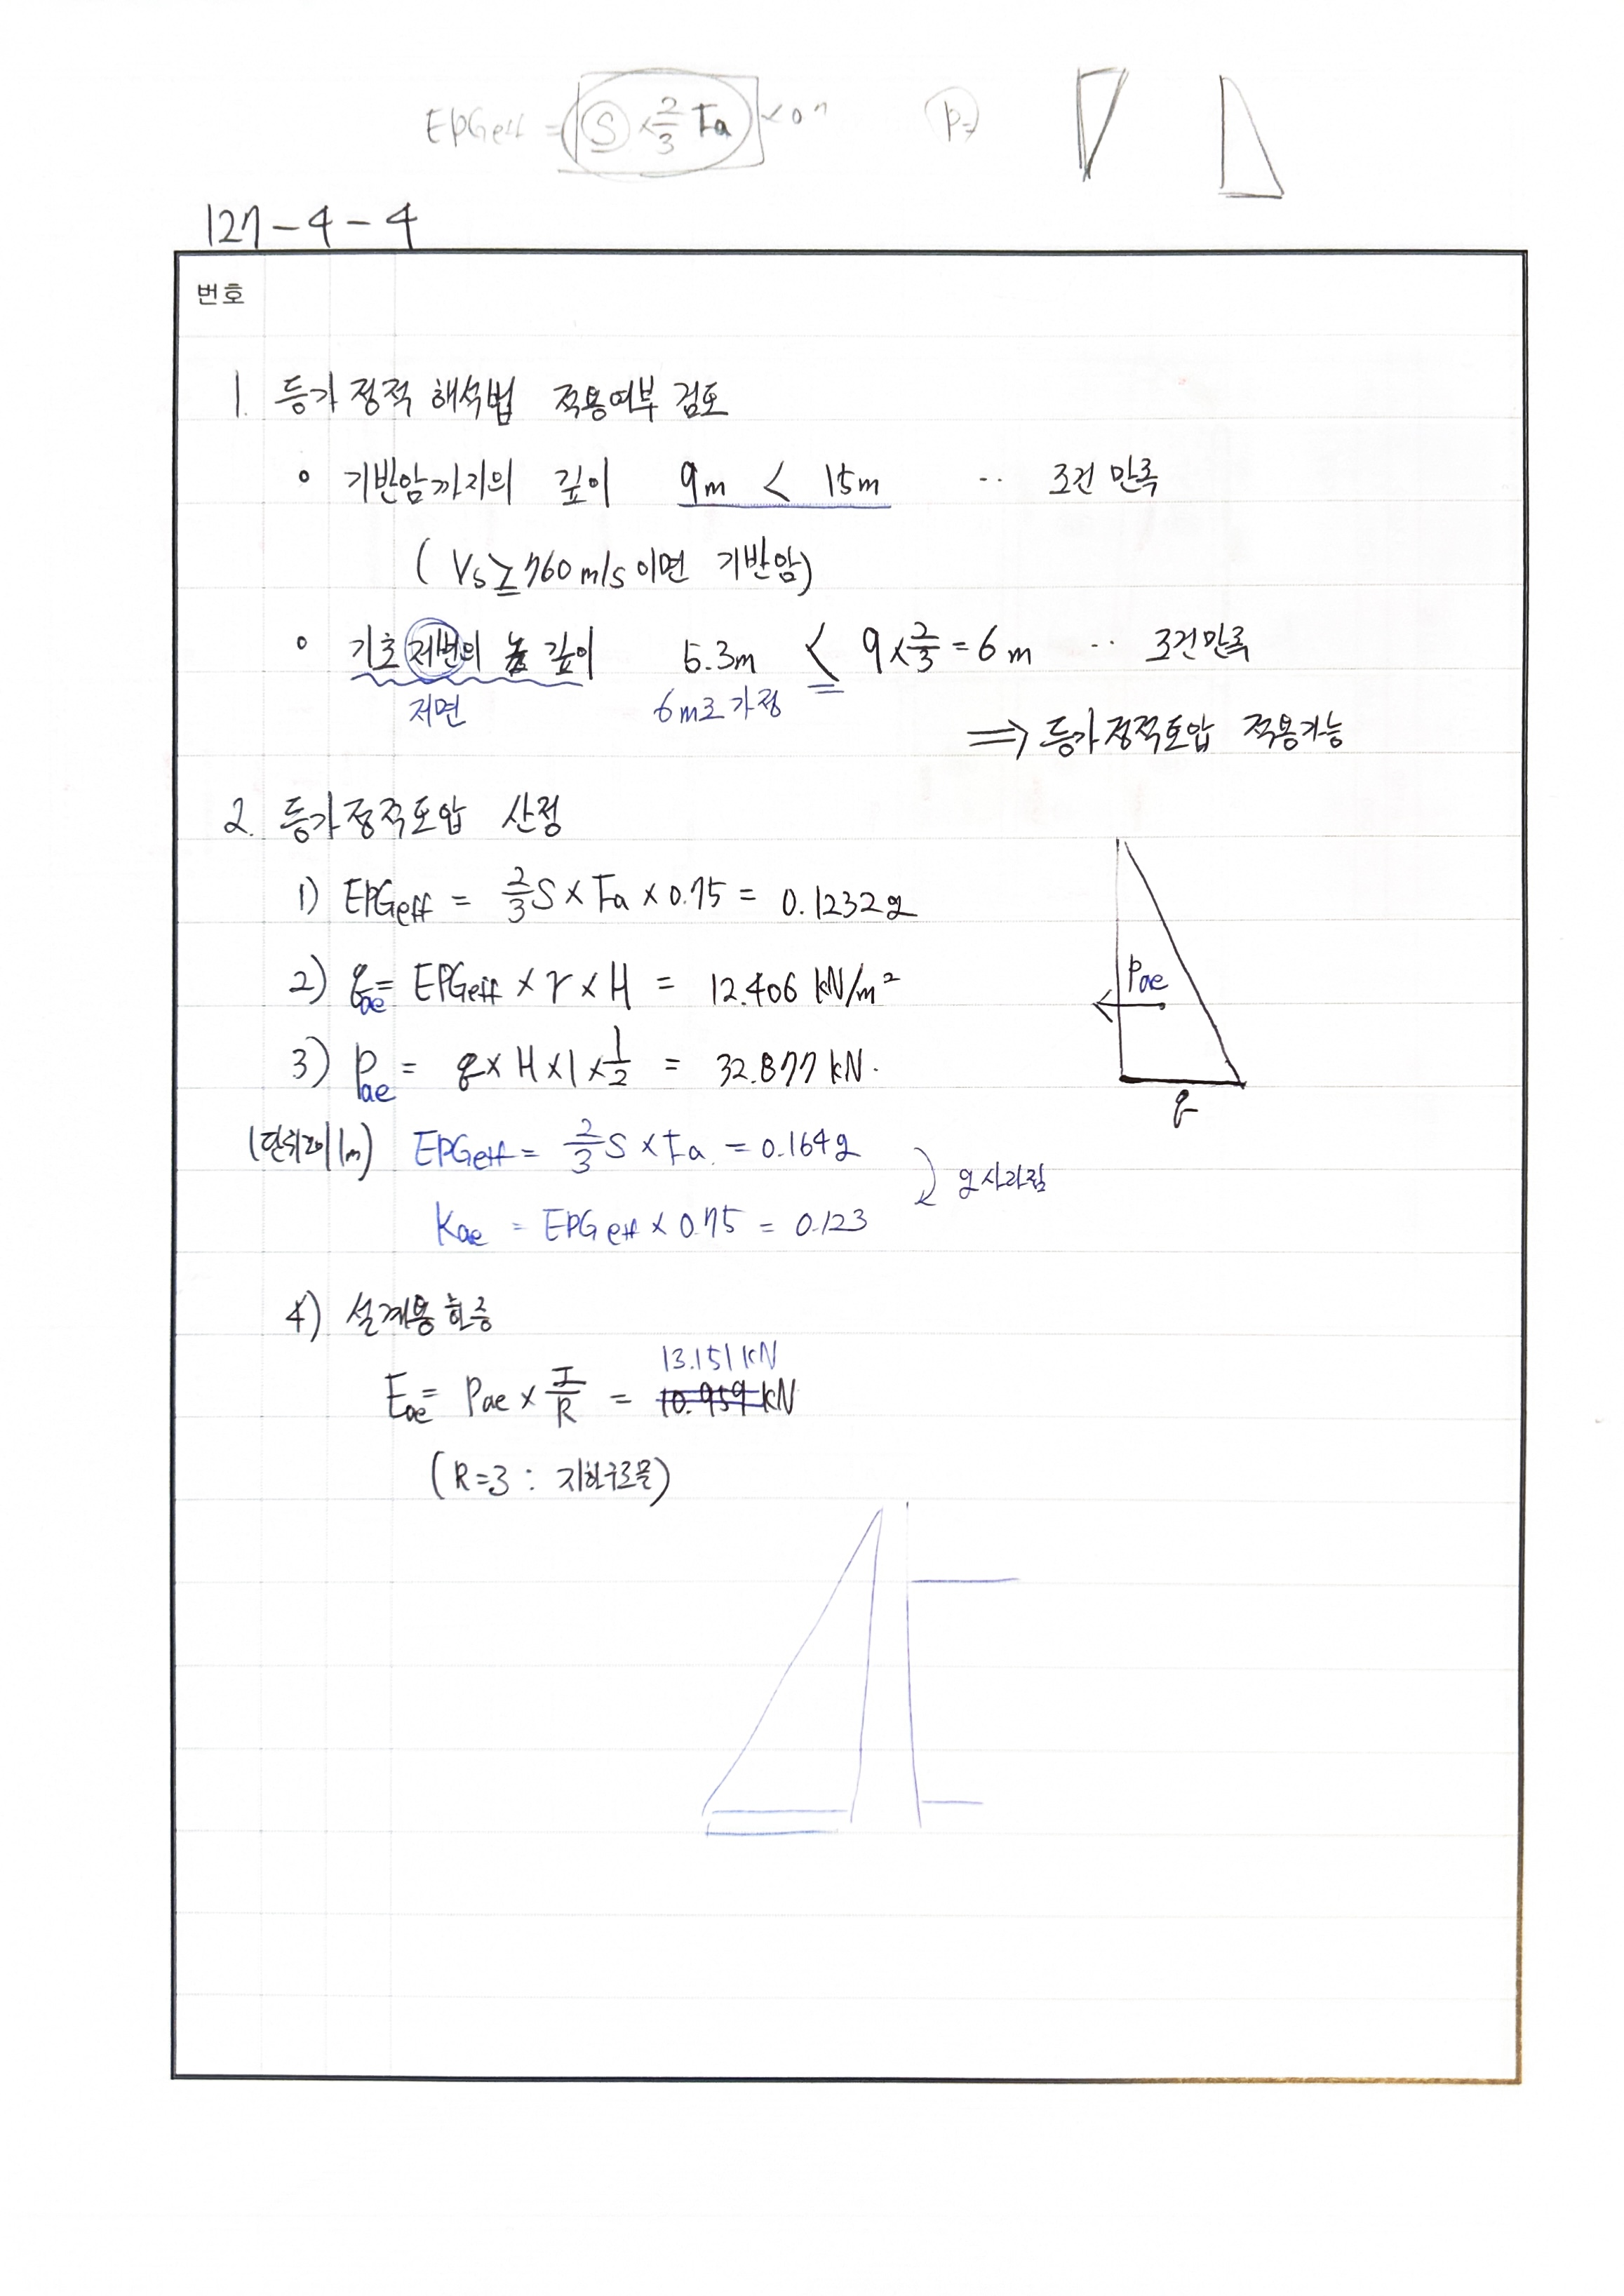 EPGeff = S × 2/3 Fa × 0.7
127 - 4 - 4
번호
1. 등가정적 해석법 적용여부 검토
◦ 기반암까지의 깊이 9m < 15m ‥ 조건 만족
( Vs ≥ 760 m/s 이면 기반암)
◦ 기초 저변의 깊이 5.3m < 9 × 2/3 = 6m ‥ 조건만족
저면 6m로 가정
⇒ 등가정적토압 적용가능
2. 등가정적토압 산정
1) EPGeff = 2/3 S × Fa × 0.75 = 0.1232g
2) qae = EPGeff × r × H = 12.406 kN/m²
Pae
3) Pae = q × H × 1 × 1/2 = 32.877 kN.
q
(단위길이 1m) EPGeff = 2/3 S × Fa = 0.164g
g사라짐
Kae = EPGeff × 0.75 = 0.123
4) 설계용 하중
13.151 kN
Eae = Pae × I/R = 10.959 kN
(R=3 : 지하구조물)